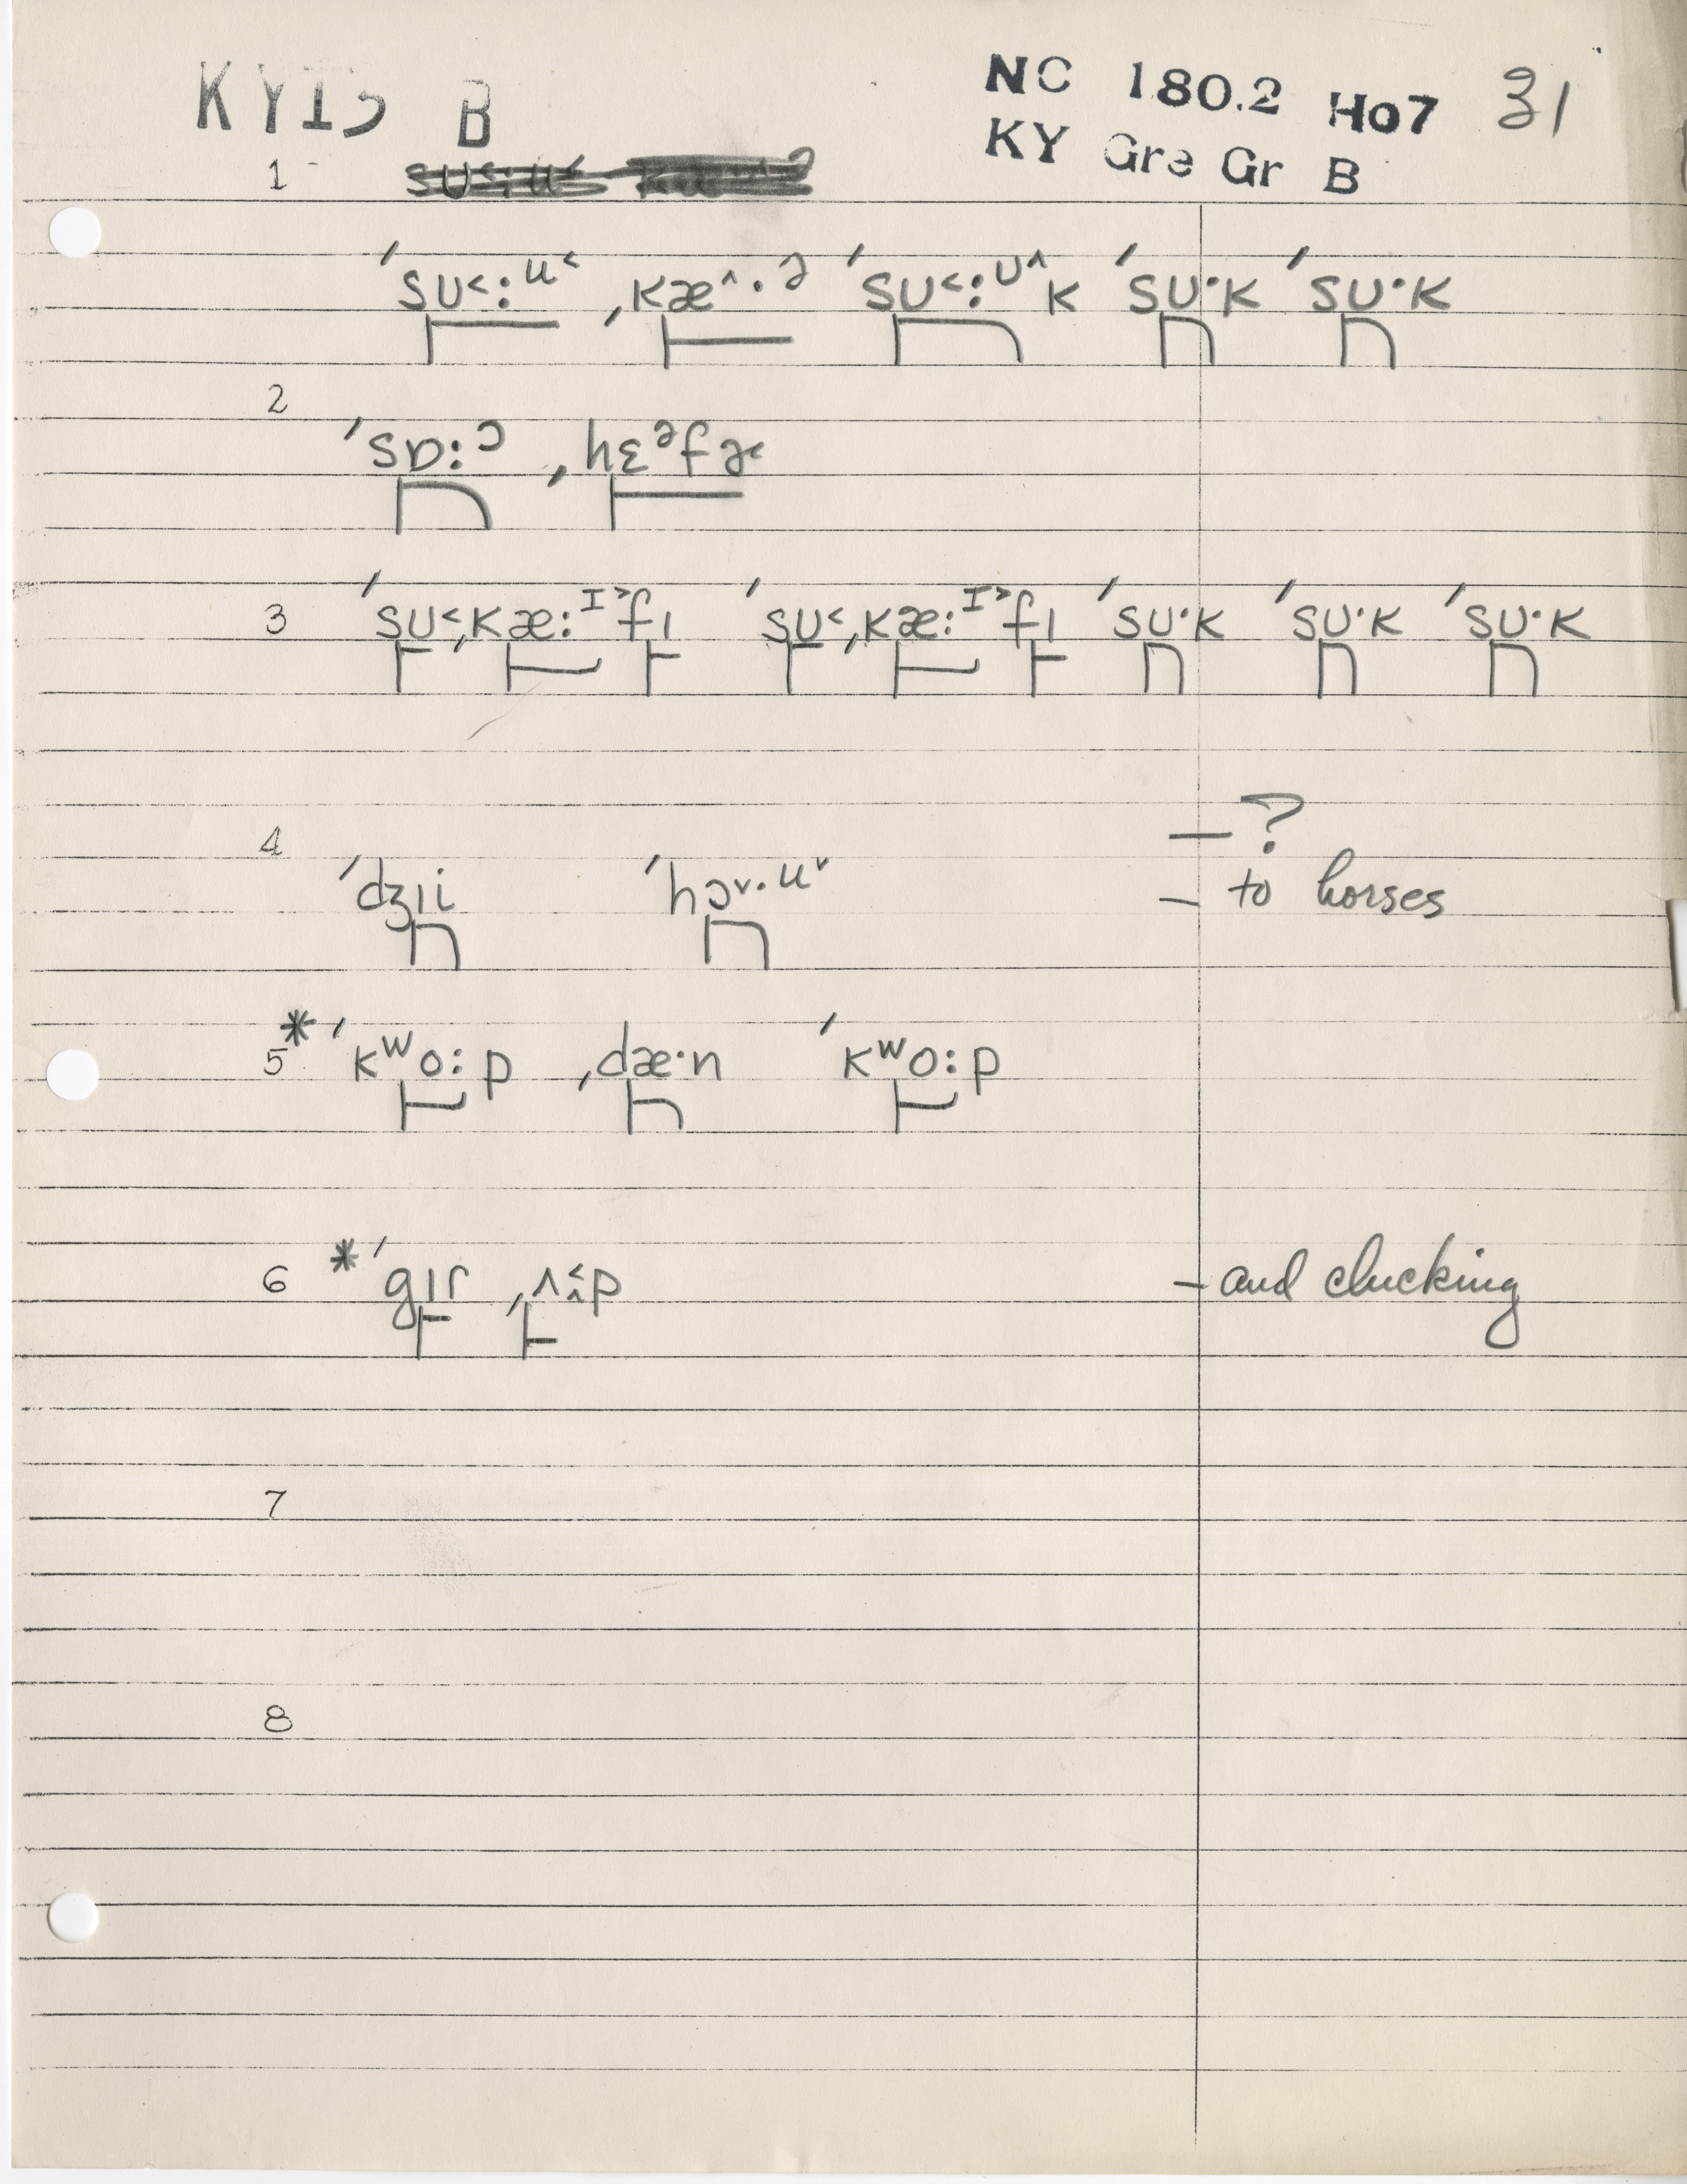 KY15 B
NC 180.2 Ho7 31
KY Gre Gr B
1
ˈsʊ˂:ᵘ˂ ˌkæ˄·ᵊ ˈsʊ˂:ᶷ˄k ˈsʊ·k ˈsʊ·k
2
ˈsɒ:ᵓ ˌhɛᵊfɚ
3 ˈsʊ˂ˌkæ:ᴵ˃fɪ ˈsʊ˂ˌkæ:ᴵ˃fɪ ˈsʊ·k ˈsʊ·k ˈsʊ·k
4 — ?
ˈdʒɪi ˈhɔ˅·ᵘ˅ — to horses
5 * ˈkʷo:p ˌdæ·n ˈkʷo:p
6 * ˈgɪr — and clucking
7
8